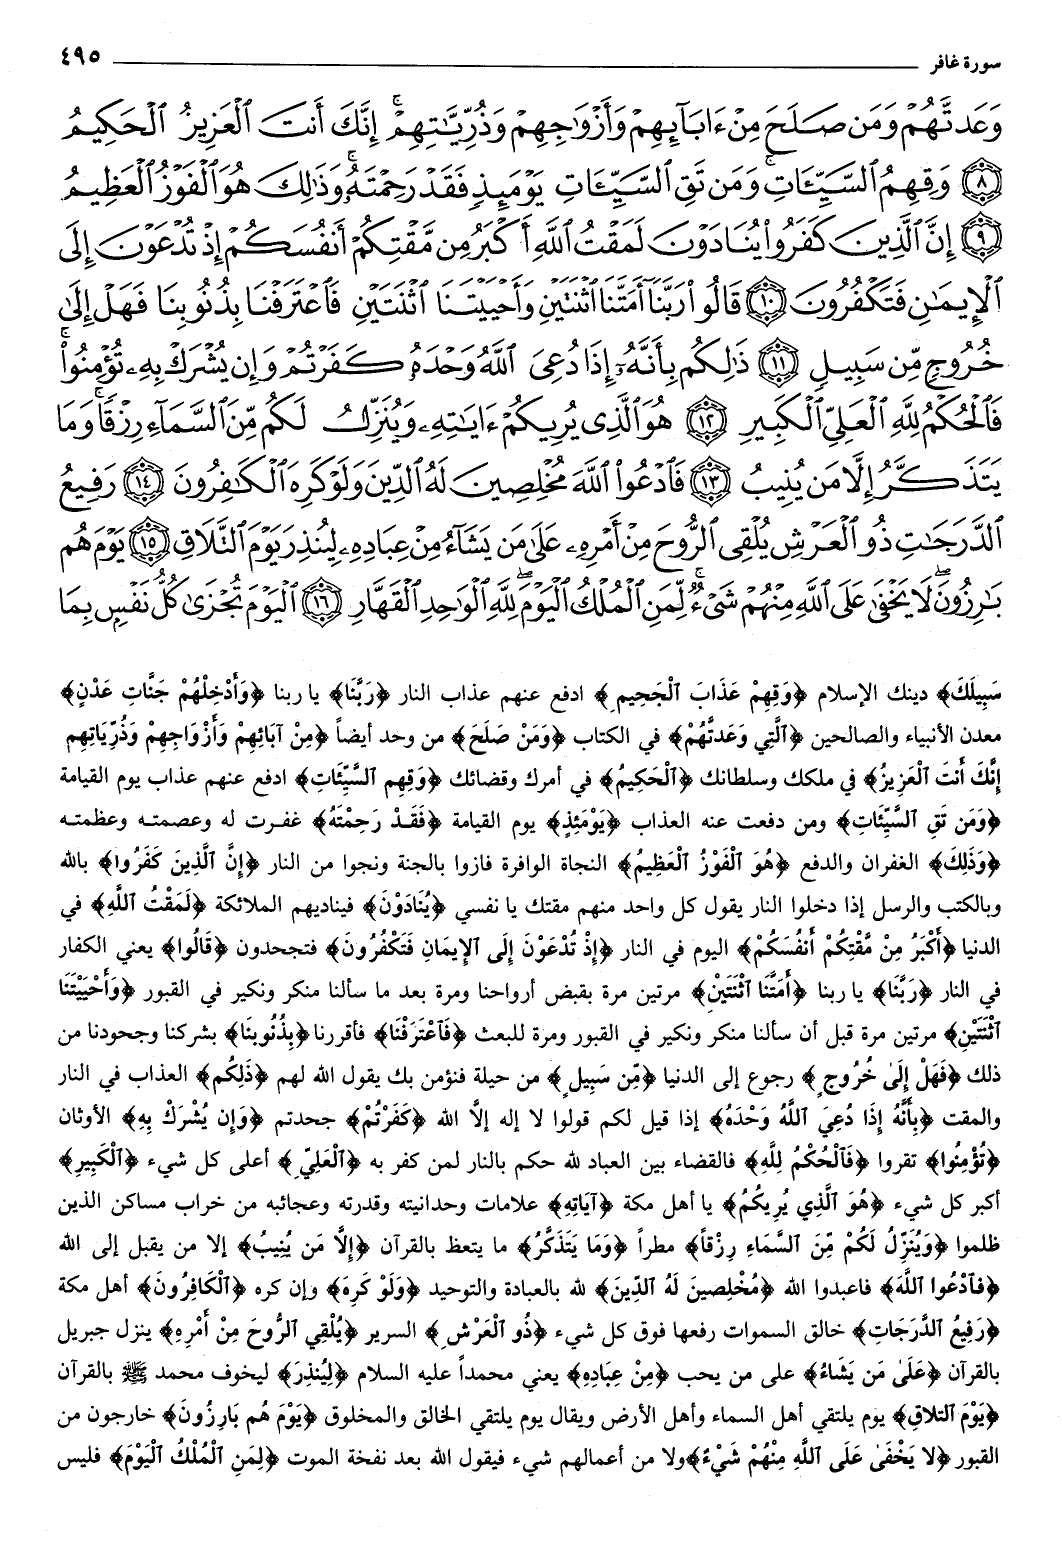 سورة غافر ٤٩٥
وَعَدتَّهُمْ وَمَن صَلَحَ مِنْ ءَابَآئِهِمْ وَأَزْوَٰجِهِمْ وَذُرِّيَّٰتِهِمْ ۚ إِنَّكَ أَنتَ ٱلْعَزِيزُ ٱلْحَكِيمُ
﴿٨﴾ وَقِهِمُ ٱلسَّيِّـَٔاتِ ۚ وَمَن تَقِ ٱلسَّيِّـَٔاتِ يَوْمَئِذٍ فَقَدْ رَحِمْتَهُۥ ۚ وَذَٰلِكَ هُوَ ٱلْفَوْزُ ٱلْعَظِيمُ
﴿٩﴾ إِنَّ ٱلَّذِينَ كَفَرُوا۟ يُنَادَوْنَ لَمَقْتُ ٱللَّهِ أَكْبَرُ مِن مَّقْتِكُمْ أَنفُسَكُمْ إِذْ تُدْعَوْنَ إِلَى
ٱلْإِيمَٰنِ فَتَكْفُرُونَ ﴿١٠﴾ قَالُوا۟ رَبَّنَآ أَمَتَّنَا ٱثْنَتَيْنِ وَأَحْيَيْتَنَا ٱثْنَتَيْنِ فَٱعْتَرَفْنَا بِذُنُوبِنَا فَهَلْ إِلَىٰ
خُرُوجٍ مِّن سَبِيلٍ ﴿١١﴾ ذَٰلِكُم بِأَنَّهُۥٓ إِذَا دُعِىَ ٱللَّهُ وَحْدَهُۥ كَفَرْتُمْ ۖ وَإِن يُشْرَكْ بِهِۦ تُؤْمِنُوا۟ ۚ
فَٱلْحُكْمُ لِلَّهِ ٱلْعَلِىِّ ٱلْكَبِيرِ ﴿١٢﴾ هُوَ ٱلَّذِى يُرِيكُمْ ءَايَٰتِهِۦ وَيُنَزِّلُ لَكُم مِّنَ ٱلسَّمَآءِ رِزْقًا ۚ وَمَا
يَتَذَكَّرُ إِلَّا مَن يُنِيبُ ﴿١٣﴾ فَٱدْعُوا۟ ٱللَّهَ مُخْلِصِينَ لَهُ ٱلدِّينَ وَلَوْ كَرِهَ ٱلْكَٰفِرُونَ ﴿١٤﴾ رَفِيعُ
ٱلدَّرَجَٰتِ ذُو ٱلْعَرْشِ يُلْقِى ٱلرُّوحَ مِنْ أَمْرِهِۦ عَلَىٰ مَن يَشَآءُ مِنْ عِبَادِهِۦ لِيُنذِرَ يَوْمَ ٱلتَّلَاقِ ﴿١٥﴾ يَوْمَ هُم
بَٰرِزُونَ ۖ لَا يَخْفَىٰ عَلَى ٱللَّهِ مِنْهُمْ شَىْءٌ ۚ لِّمَنِ ٱلْمُلْكُ ٱلْيَوْمَ ۖ لِلَّهِ ٱلْوَٰحِدِ ٱلْقَهَّارِ ﴿١٦﴾ ٱلْيَوْمَ تُجْزَىٰ كُلُّ نَفْسٍۭ بِمَا
سَبِيلَكَ﴾ دينك الإسلام ﴿وَقِهِمْ عَذَابَ ٱلْجَحِيمِ﴾ ادفع عنهم عذاب النار ﴿رَبَّنَا﴾ يا ربنا ﴿وَأَدْخِلْهُمْ جَنَّاتِ عَدْنٍ﴾
معدن الأنبياء والصالحين ﴿ٱلَّتِي وَعَدتَّهُمْ﴾ في الكتاب ﴿وَمَنْ صَلَحَ﴾ من وحد أيضاً ﴿مِنْ آبَائِهِمْ وَأَزْوَاجِهِمْ وَذُرِّيَاتِهِم
إِنَّكَ أَنتَ ٱلْعَزِيزُ﴾ في ملكك وسلطانك ﴿ٱلْحَكِيمُ﴾ في أمرك وقضائك ﴿وَقِهِمِ ٱلسَّيِّئَاتِ﴾ ادفع عنهم عذاب يوم القيامة
﴿وَمَن تَقِ ٱلسَّيِّئَاتِ﴾ ومن دفعت عنه العذاب ﴿يَوْمَئِذٍ﴾ يوم القيامة ﴿فَقَدْ رَحِمْتَهُ﴾ غفرت له وعصمته وعظمته
﴿وَذَلِكَ﴾ الغفران والدفع ﴿هُوَ ٱلْفَوْزُ ٱلْعَظِيمُ﴾ النجاة الوافرة فازوا بالجنة ونجوا من النار ﴿إِنَّ ٱلَّذِينَ كَفَرُوا﴾ بالله
وبالكتب والرسل إذا دخلوا النار يقول كل واحد منهم مقتك يا نفسي ﴿يُنَادَوْنَ﴾ فيناديهم الملائكة ﴿لَمَقْتُ ٱللَّهِ﴾ في
الدنيا ﴿أَكْبَرُ مِنْ مَّقْتِكُمْ أَنفُسَكُمْ﴾ اليوم في النار ﴿إِذْ تُدْعَوْنَ إِلَى ٱلإِيمَانِ فَتَكْفُرُونَ﴾ فتجحدون ﴿قَالُوا﴾ يعني الكفار
في النار ﴿رَبَّنَا﴾ يا ربنا ﴿أَمَتَّنَا ٱثْنَتَيْنِ﴾ مرتين مرة بقبض أرواحنا ومرة بعد ما سألنا منكر ونكير في القبور ﴿وَأَحْيَيْتَنَا
ٱثْنَتَيْنِ﴾ مرتين مرة قبل أن سألنا منكر ونكير في القبور ومرة للبعث ﴿فَٱعْتَرَفْنَا﴾ فأقررنا ﴿بِذُنُوبِنَا﴾ بشركنا وجحودنا من
ذلك ﴿فَهَلْ إِلَىٰ خُرُوجٍ﴾ رجوع إلى الدنيا ﴿مِّن سَبِيلٍ﴾ من حيلة فنؤمن بك يقول الله لهم ﴿ذَلِكُم﴾ العذاب في النار
والمقت ﴿بِأَنَّهُ إِذَا دُعِيَ ٱللَّهُ وَحْدَهُ﴾ إذا قيل لكم قولوا لا إله إلَّا الله ﴿كَفَرْتُمْ﴾ جحدتم ﴿وَإِن يُشْرَكْ بِهِ﴾ الأوثان
﴿تُؤْمِنُوا﴾ تقروا ﴿فَٱلْحُكْمُ لِلَّهِ﴾ فالقضاء بين العباد لله حكم بالنار لمن كفر به ﴿ٱلْعَلِيِّ﴾ أعلى كل شيء ﴿ٱلْكَبِيرِ﴾
أكبر كل شيء ﴿هُوَ ٱلَّذِي يُرِيكُمْ﴾ يا أهل مكة ﴿آيَاتِهِ﴾ علامات وحدانيته وقدرته وعجائبه من خراب مساكن الذين
ظلموا ﴿وَيُنَزِّلُ لَكُمْ مِّنَ ٱلسَّمَاءِ رِزْقاً﴾ مطراً ﴿وَمَا يَتَذَكَّرُ﴾ ما يتعظ بالقرآن ﴿إِلاَّ مَن يُنِيبُ﴾ إلا من يقبل إلى الله
﴿فَٱدْعُوا ٱللَّهَ﴾ فاعبدوا الله ﴿مُخْلِصِينَ لَهُ ٱلدِّينَ﴾ لله بالعبادة والتوحيد ﴿وَلَوْ كَرِهَ﴾ وإن كره ﴿ٱلْكَافِرُونَ﴾ أهل مكة
﴿رَفِيعُ ٱلدَّرَجَاتِ﴾ خالق السموات رفعها فوق كل شيء ﴿ذُو ٱلْعَرْشِ﴾ السرير ﴿يُلْقِي ٱلرُّوحَ مِنْ أَمْرِهِ﴾ ينزل جبريل
بالقرآن ﴿عَلَىٰ مَن يَشَاءُ﴾ على من يحب ﴿مِنْ عِبَادِهِ﴾ يعني محمداً عليه السلام ﴿لِيُنذِرَ﴾ ليخوف محمد ﷺ بالقرآن
﴿يَوْمَ ٱلتلاقِ﴾ يوم يلتقي أهل السماء وأهل الأرض ويقال يوم يلتقي الخالق والمخلوق ﴿يَوْمَ هُم بَارِزُونَ﴾ خارجون من
القبور ﴿لا يَخْفَىٰ عَلَى ٱللَّهِ مِنْهُمْ شَيْءٌ﴾ ولا من أعمالهم شيء فيقول الله بعد نفخة الموت ﴿لِمَنِ ٱلْمُلْكُ ٱلْيَوْمَ﴾ فليس